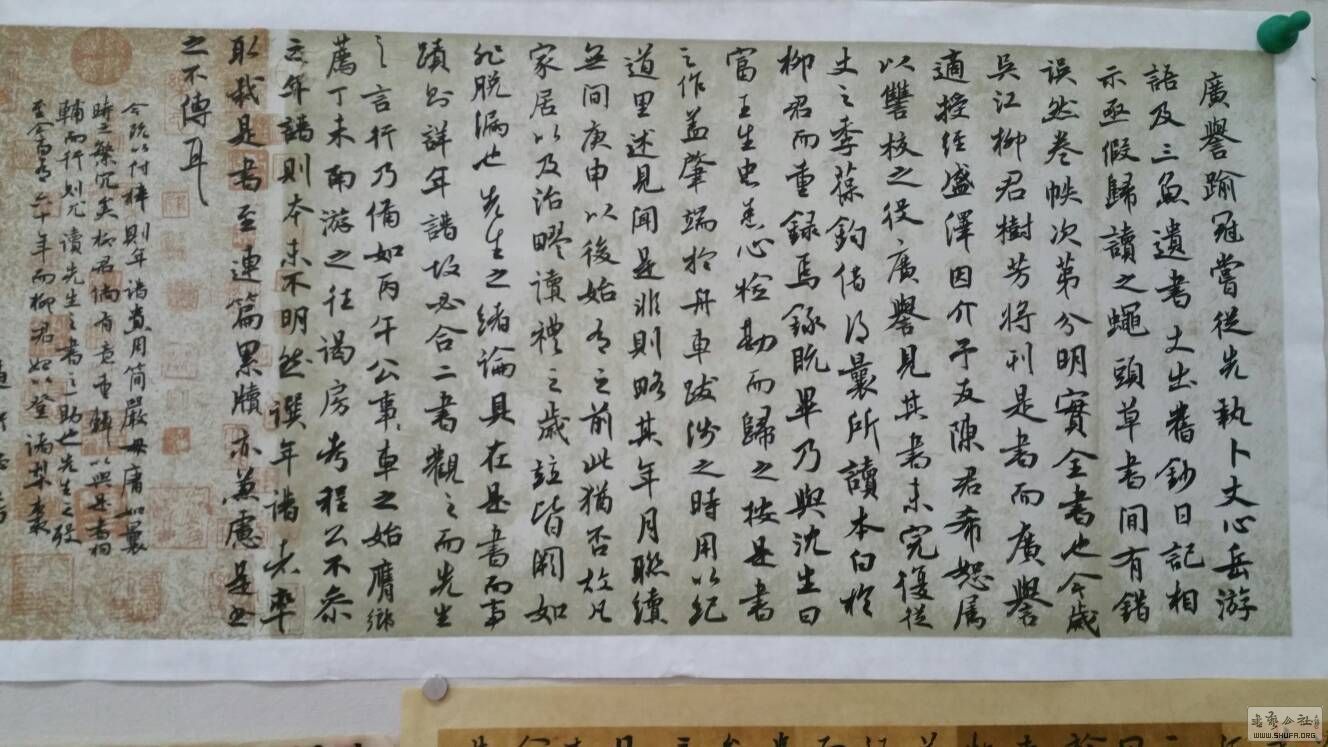 廣譽踰冠嘗從先執卜丈心岳游
語及三魚遺書丈出舊鈔日記相
示亟假歸讀之蠅頭草書間有錯
误然卷帙次第分明實全書也今歲
吳江柳君樹芳將刊是書而廣譽
適授經盛澤因介予友陳君希恕属
以讐校之役廣譽見其書未完復從
丈之季葆鈞借得曩所讀本白於
柳君而重録焉録既畢乃與沈生曰
富王生史悉心检勘而歸之按是書
之作葢肇端於舟車跋涉之時用以紀
道里述見聞是非則略其年月聯續
無间庚申以後始有之前此猶否故凡
家居以及治嘐讀禮之歲竝皆闕如
非脱漏也先生之緒論具在是書而事
蹟則詳年譜故必合二書觀之而先生
之言行乃備如丙午公車之始膺鄉
薦丁未南游之往谒房考程公不參
之年譜則本末不明然譔年譜者率
取哉是書至連篇累牘亦兼慮是書
之不傳耳
今既以付梓則年谱貴用简嚴毋庸如曩
時之繁冗矣柳君倘有意重輯以與是書相
輔而行刬凡讀先生之書之一助也先生之殁
至今百有六十年而柳君始以登諸梨棗
书艺公社
WWW.SHUFA.ORG